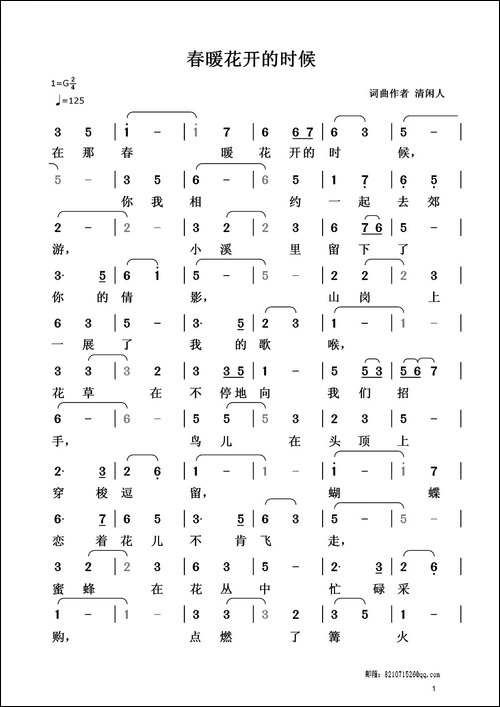 春暖花开的时候
1=G 2/4
♩=125
词曲作者 清闲人
3 5 | 1 - | 1 7 | 6 6 7 | 6 3 | 5 - |
在 那 春 暖 花 开的 时 候,
5 - | 3 5 | 6 - | 6 5 | 1 7 | 6 5 |
你 我 相 约 一 起 去 郊
2 - | 2 - | 2 3 | 2 3 | 6 7 6 | 5 2 |
游, 小 溪 里 留 下 了
3· 5 | 6 1 | 5 - | 5 - | 2 2 | 2 3 |
你 的 倩 影, 山 岗 上
6 3 | 5 - | 3· 5 | 2 3 | 1 - | 1 - |
一 展 了 我 的 歌 喉,
3 3 | 2 3 | 3 2 | 3 3 5 | 1 - | 5 5 3 | 5 6 7 |
花 草 在 不 停地 向 我 们 招
6 - | 6 - | 5 5 | 5 3 | 2 3 | 5 - |
手, 鸟 儿 在 头 顶 上
2· 3 | 2 6 | 1 - | 1 - | 1 - | 1 7 |
穿 梭 逗 留, 蝴 蝶
6· 7 | 6 5 | 3 5 | 6 3 | 5 - | 5 - |
恋 着 花 儿 不 肯 飞 走,
3 - | 2 3 | 3 6 | 5 5 | 2· 3 | 2 6 |
蜜 蜂 在 花 丛 中 忙 碌 采
1 - | 1 - | 3 3 | 3 2 | 3 5 | 1 - |
购, 点 燃 了 篝 火
邮箱: 821071526@qq.com
1